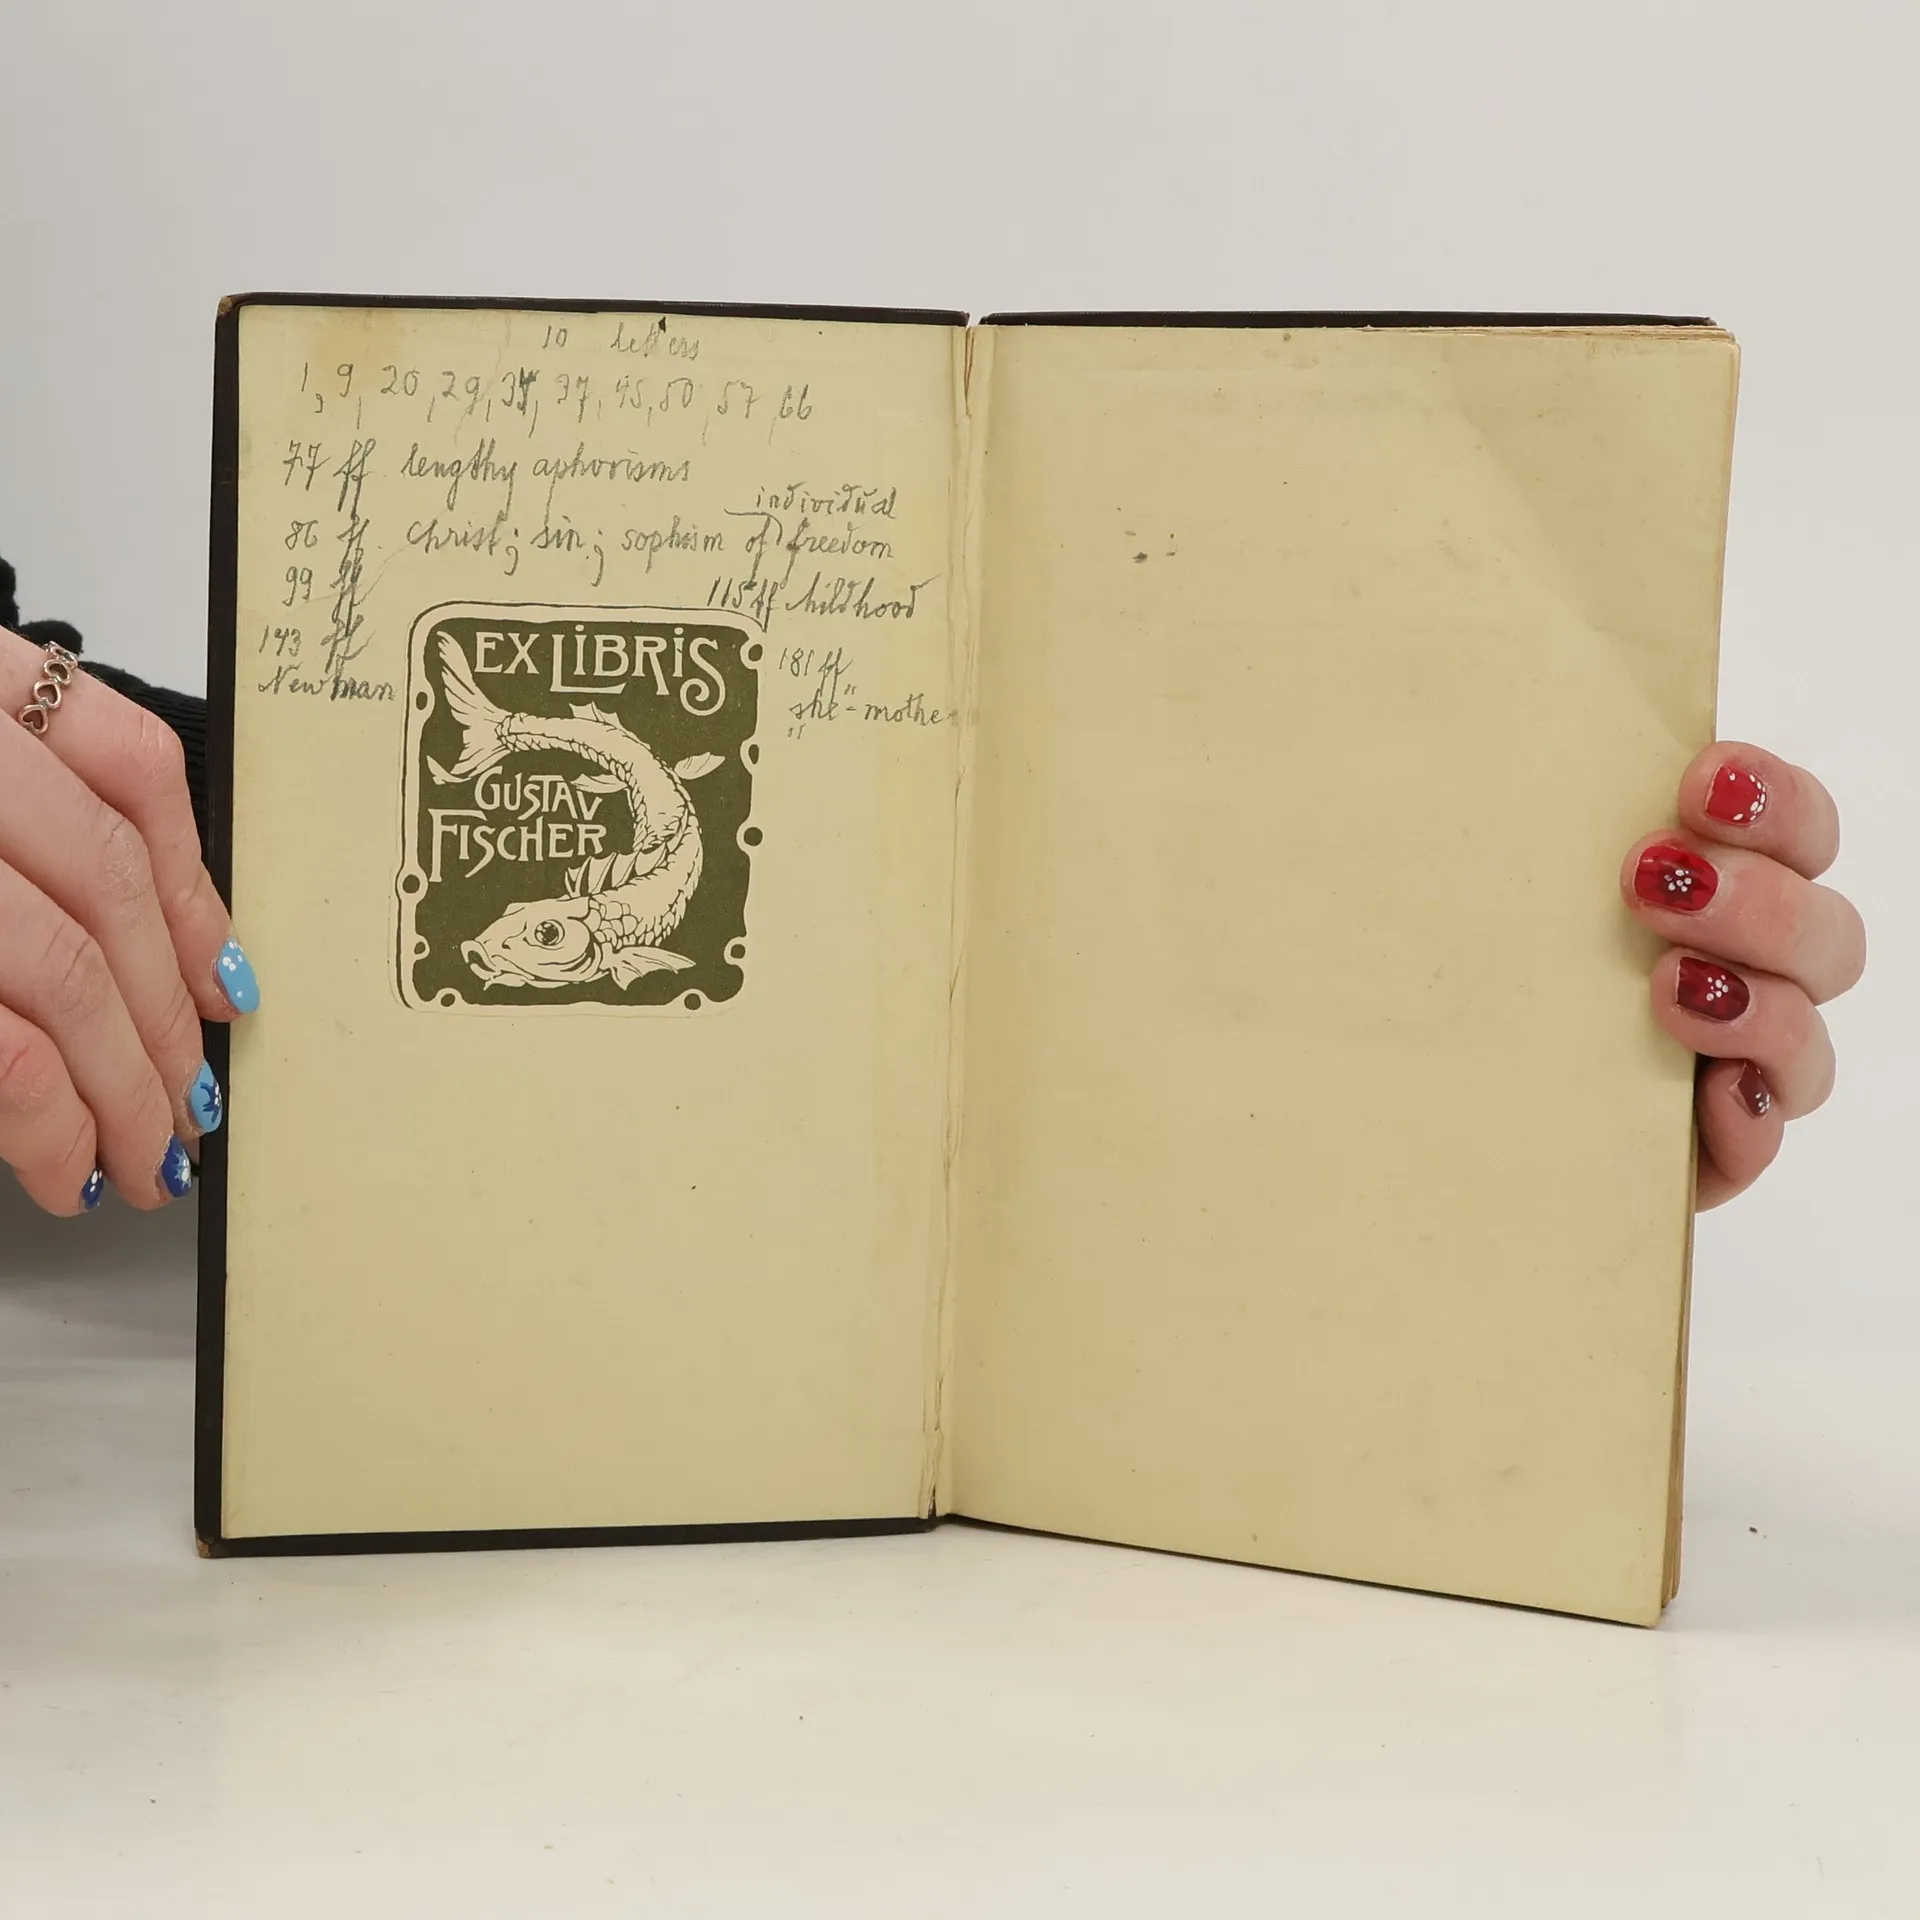 10 letters
1, 9, 20, 29, 34, 37, 45, 50, 57, 66
77 ff lengthy aphorisms
individual
86 ff. Christ; sin; sophism of freedom
99 ff
115 ff childhood
143 ff
Newman
181 ff
"she"-mothe
EX LIBRIS
GUSTAV
FISCHER